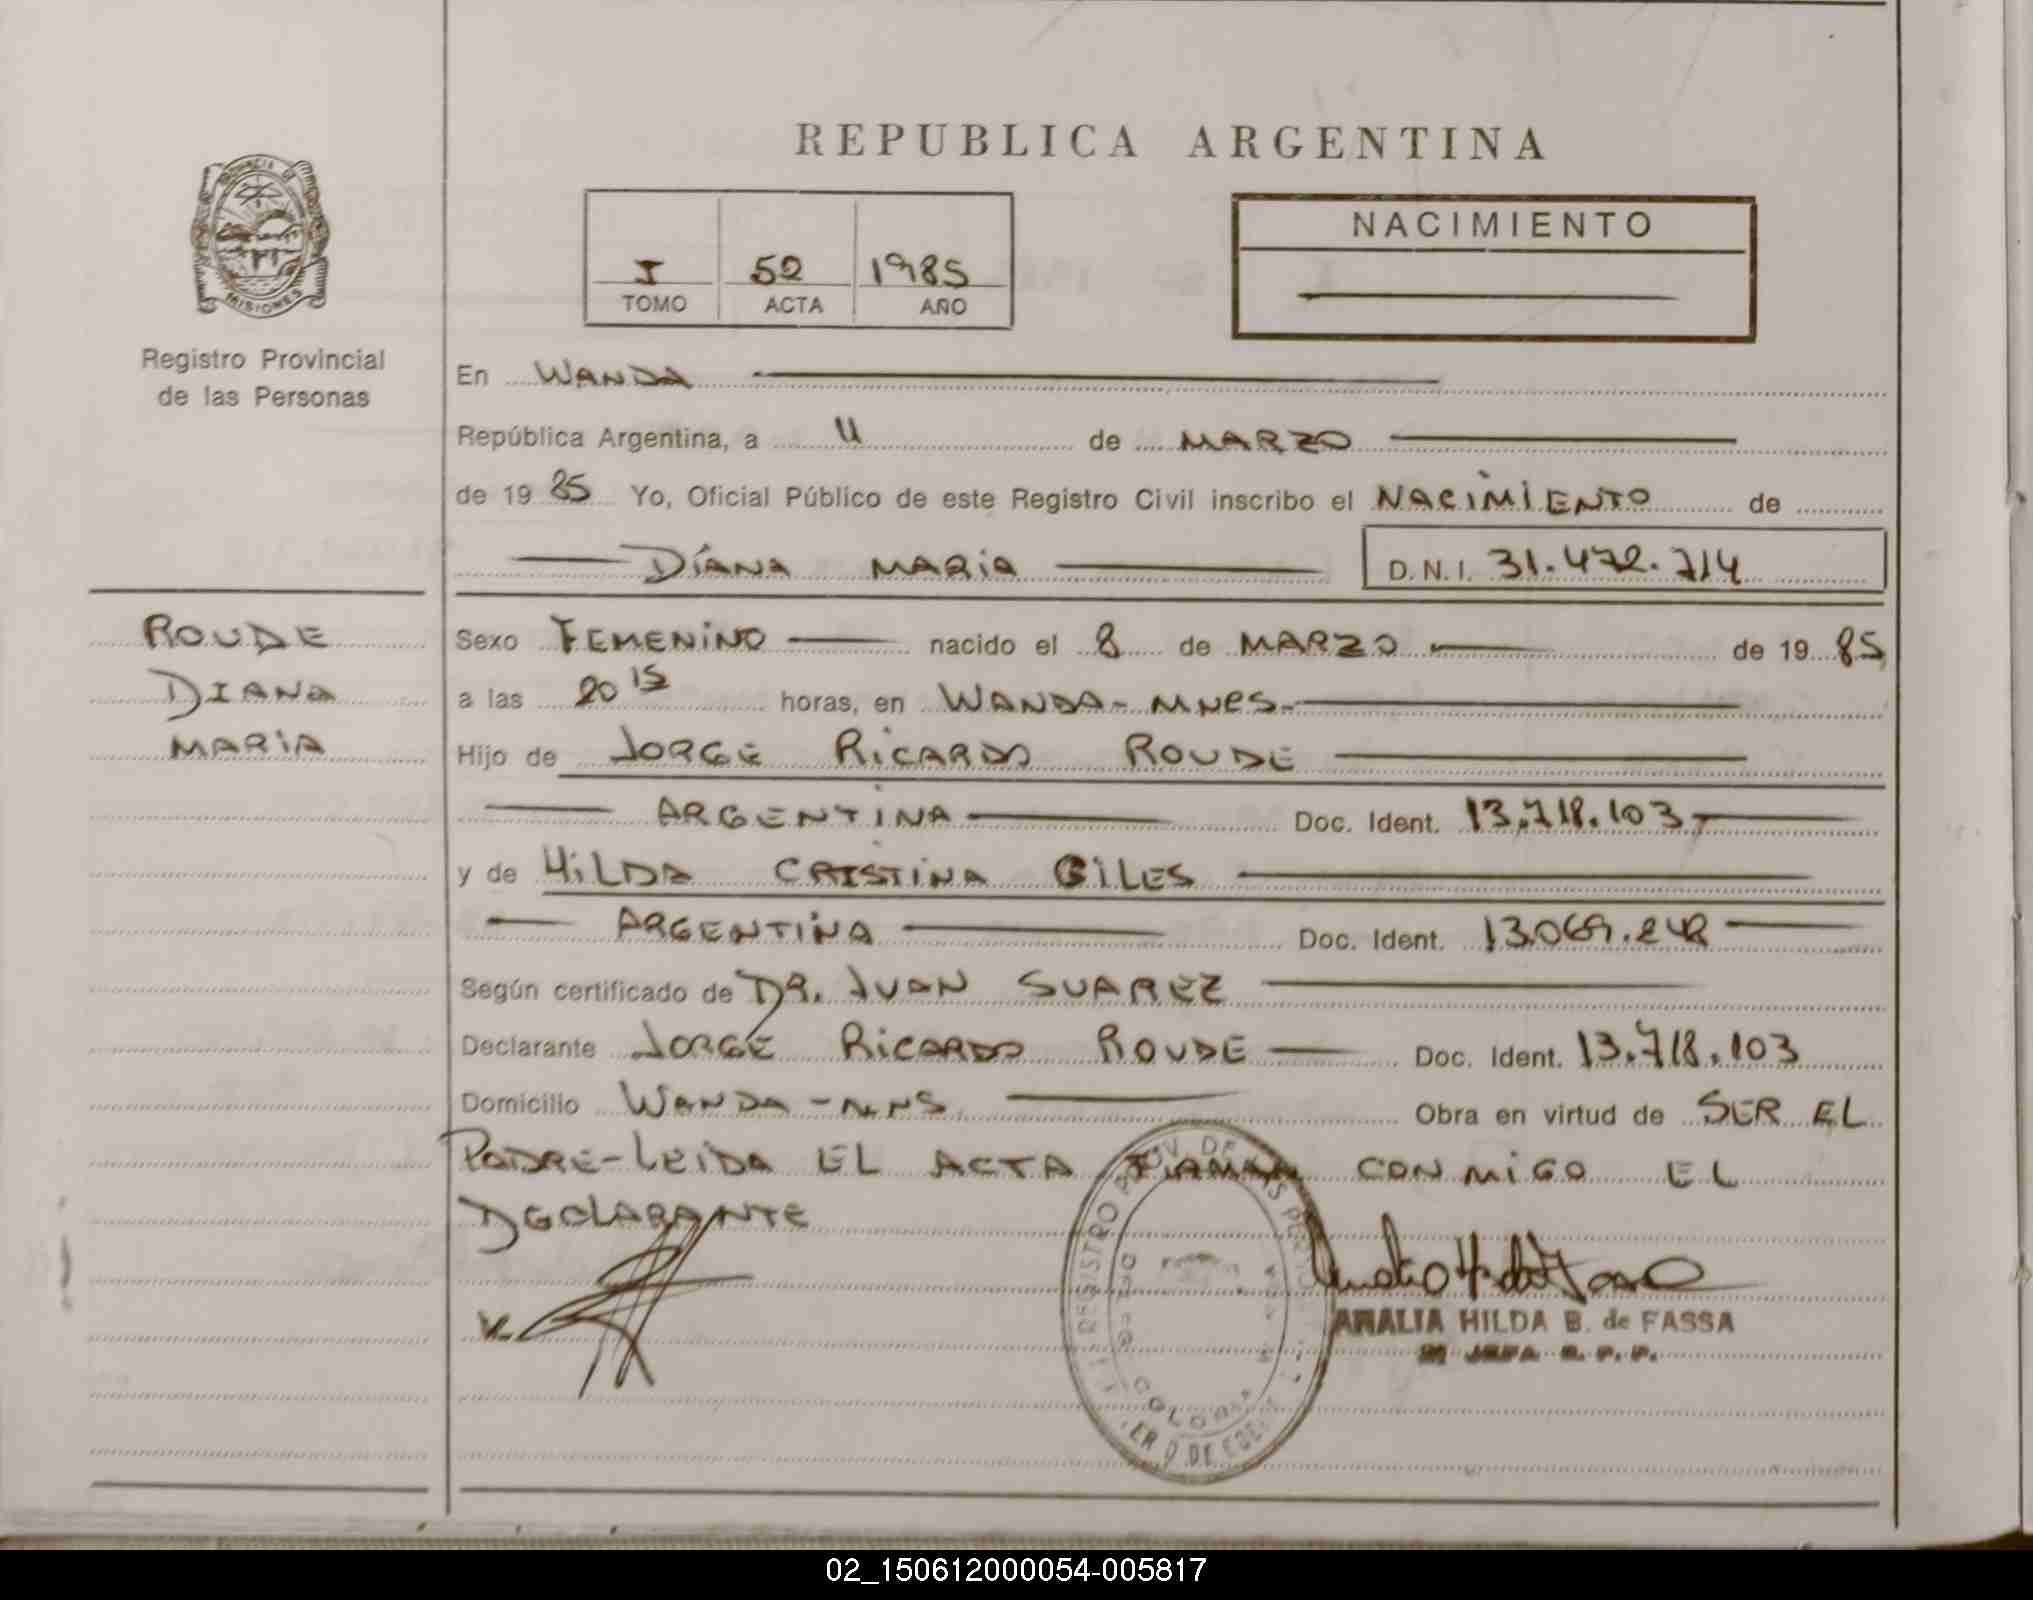 REPUBLICA ARGENTINA
PROVINCIA DE
MISIONES
Registro Provincial
de las Personas
I 52 1985
TOMO ACTA AÑO
NACIMIENTO
En WANDA
República Argentina, a 11 de MARZO
de 19 85 Yo, Oficial Público de este Registro Civil inscribo el NACIMIENTO de
DIANA MARIA D.N.I. 31.472.714
ROUDE
DIANA
MARIA
Sexo FEMENINO nacido el 8 de MARZO de 19 85
a las 20 15 horas, en WANDA-MNES-
Hijo de JORGE RICARDO ROUDE
ARGENTINA Doc. Ident. 13.718.103
y de HILDA CRISTINA GILES
ARGENTINA Doc. Ident. 13.069.242
Según certificado de DR. JUAN SUAREZ
Declarante JORGE RICARDO ROUDE Doc. Ident. 13.718.103
Domicilio WANDA-MNS Obra en virtud de SER EL
PADRE-LEIDA EL ACTA FIRMAN CONMIGO EL
DECLARANTE
REGISTRO PROV. DE LAS PERSONAS
COLONIA WANDA
AMALIA HILDA B. de FASSA
JEFA R. P. P.
02_150612000054-005817